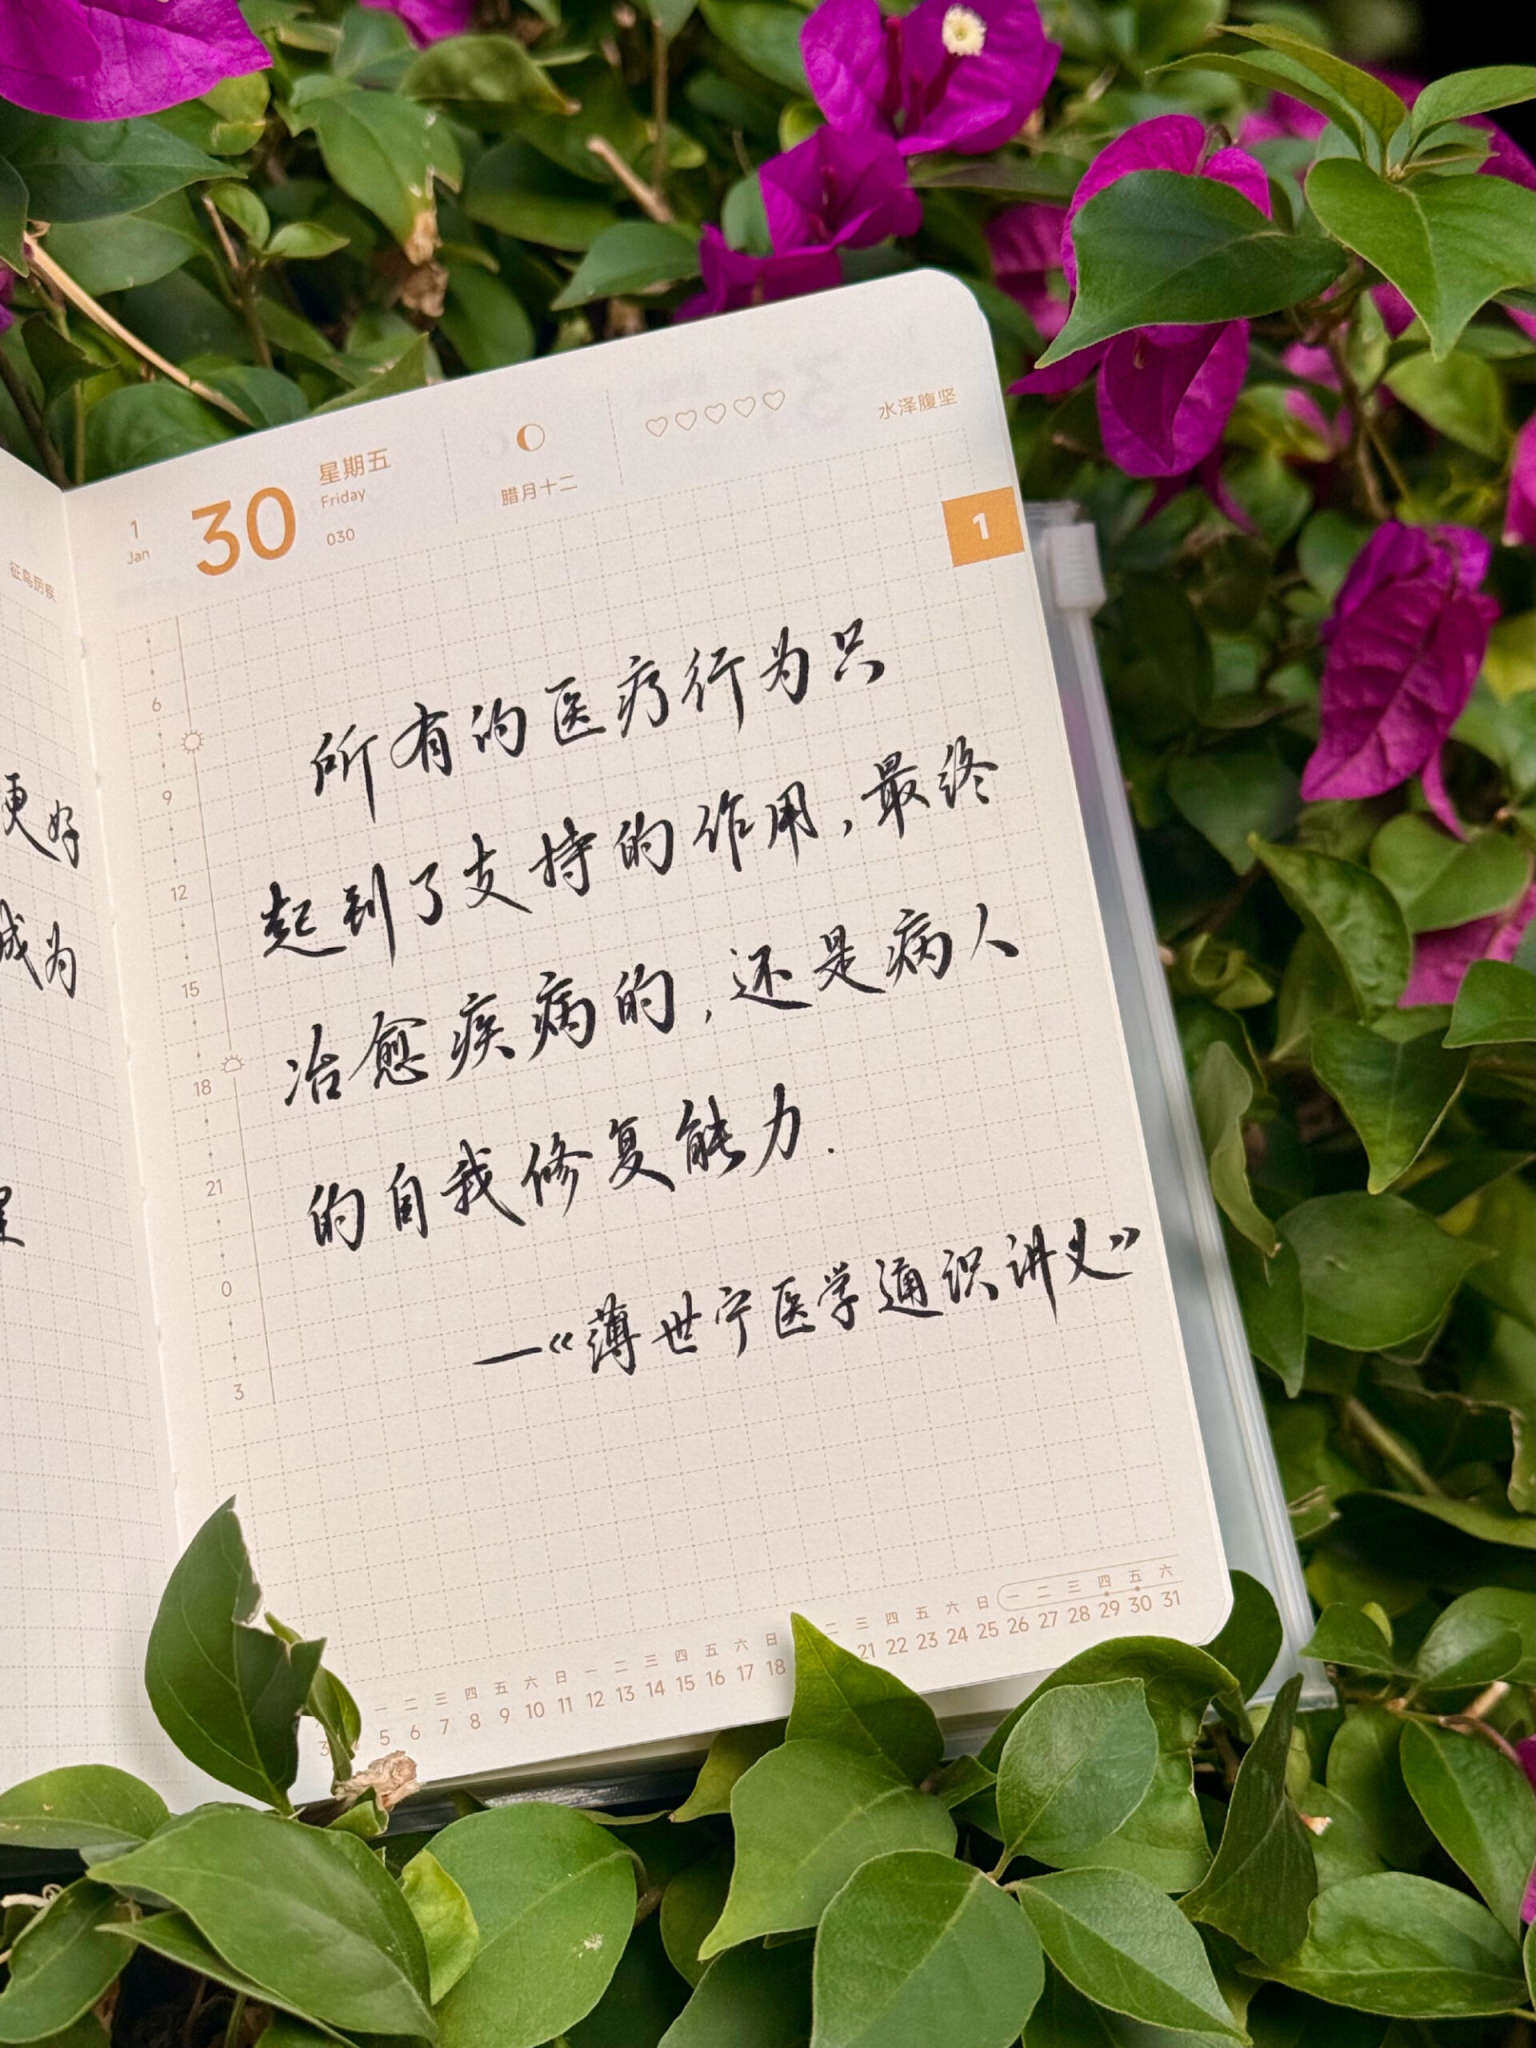 1
Jan
30
星期五
Friday
030
腊月十二
水泽腹坚
1
征鸟厉疾
6
9
12
15
18
21
0
3
所有的医疗行为只
起到了支持的作用,最终
治愈疾病的,还是病人
的自我修复能力.
—《薄世宁医学通识讲义》
更好
成为
一 二 三 四 五 六 日 一 二 三 四 五 六 日 二 三 四 五 六 日 一 二 三 四 五 六
3 5 6 7 8 9 10 11 12 13 14 15 16 17 18 21 22 23 24 25 26 27 28 29 30 31